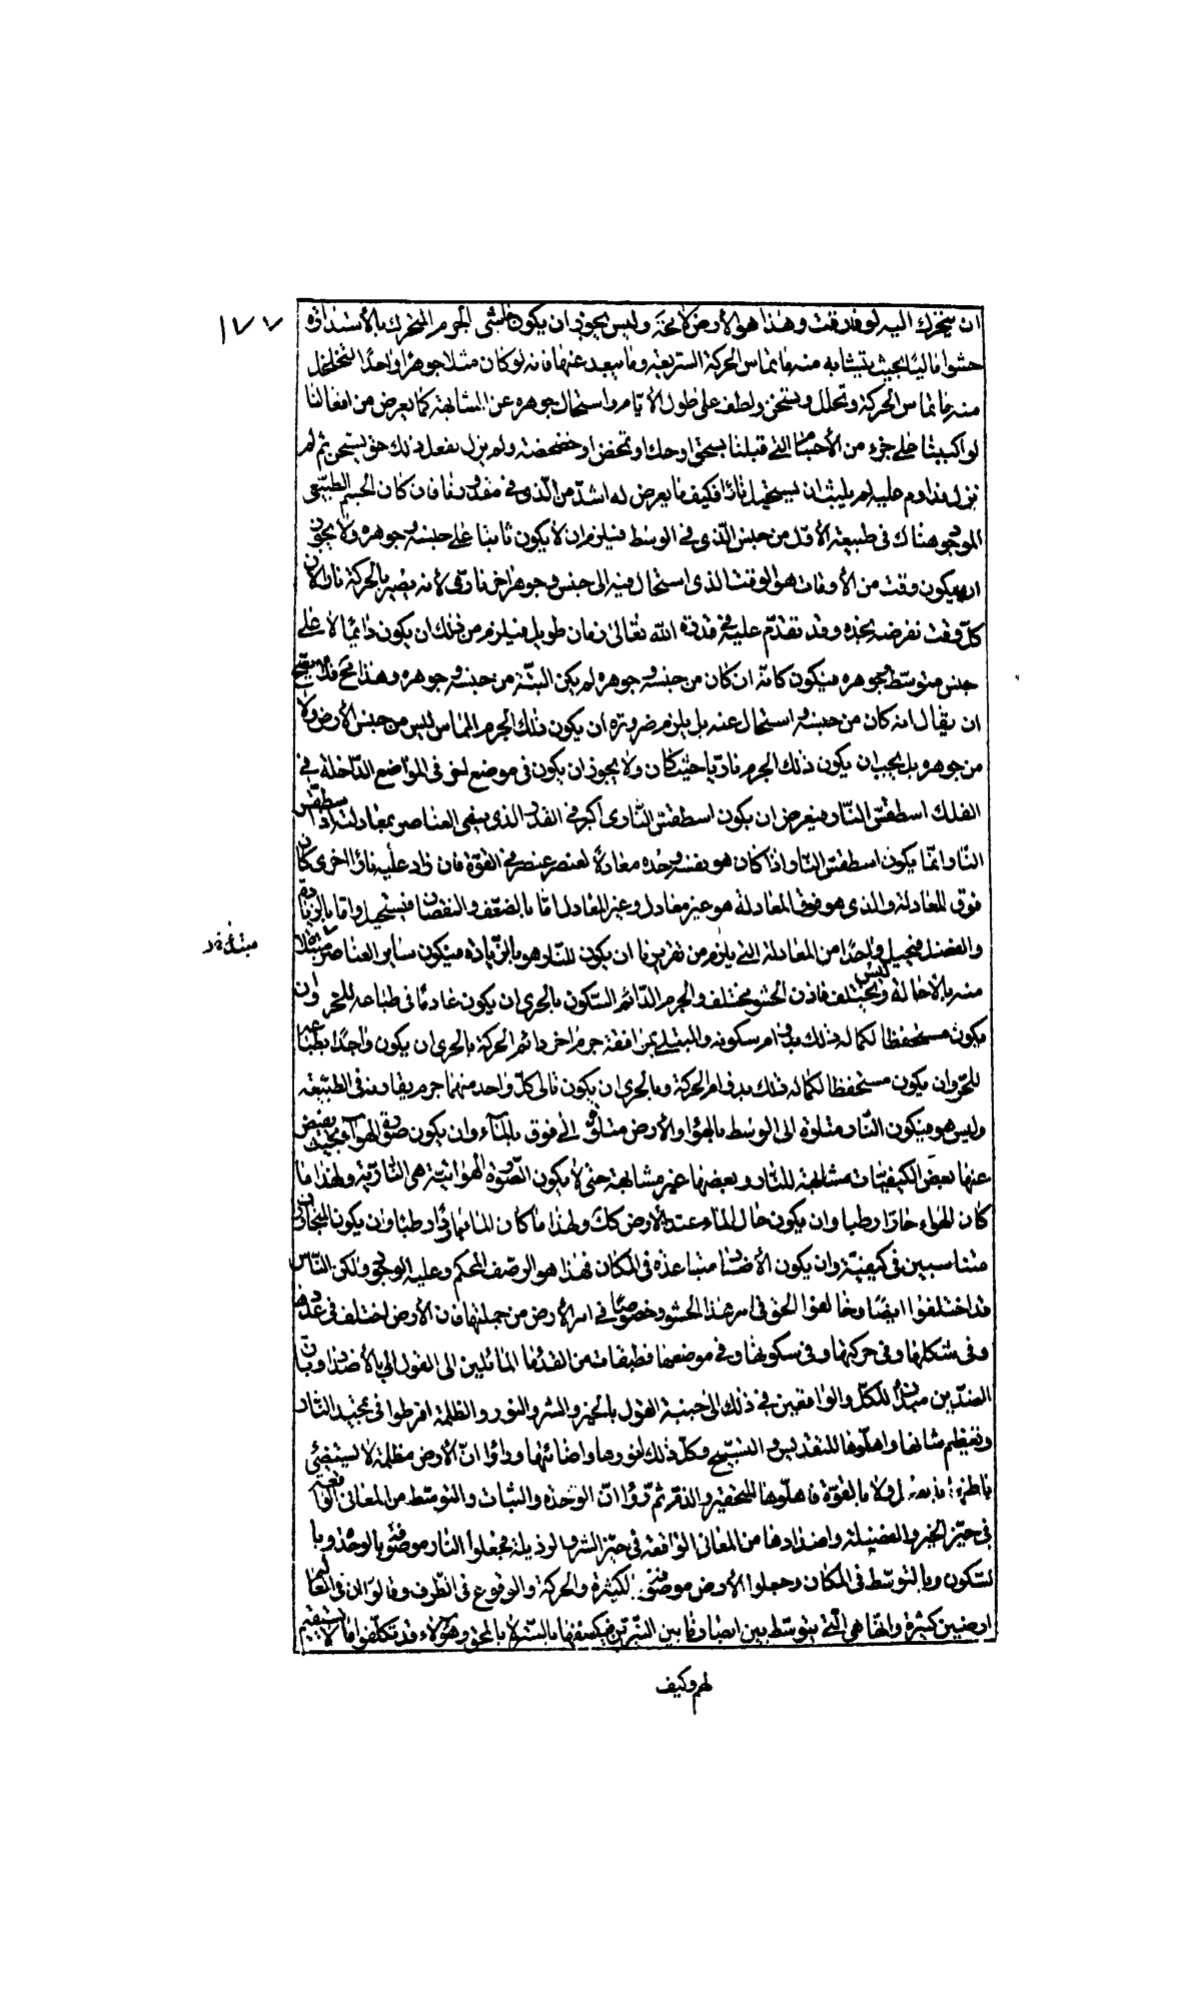 ١٧٧
ان يتحرك اليه لو فارقت وهذا هو الأرض لا محة وليس يجوز ان يكون حشى الجرم المتحرك بالأستدارة
حشوا ماليًا بحيث يتشابه منه ما يماس الحركة السريعة وما يبعد عنها فانه لو كان مثلا جوهرا واحدًا لتخلخل
منه ما يماس الحركة وتحلل وتسخن ولطف على طول الأيام واستحال جوهره عن المشابهة كما يعرض من افعالنا
لو اكببنا على جزء من الأجسام التي قبلنا بسحق او حك او تمخض او خضخضة ولم يزل نفعل ذلك حتى يسخن ثم لم
نزل نداوم عليه لم يلبث ان يستحيل نارًا فكيف ما يعرض له اشد من الذي في مقدورنا فان كان الجسم الطبيعى
الموجود هناك في طبيعة الأول من جنس الذى في الوسط فيلزم ان لا يكون ثابتا على جنسه وجوهره ولا يجوز
ان يكون وقت من الأوقات هو الوقت الذى استحال فيه الى جنس وجوهر اخر نارى لأنه يصير بالحركة نارا لان
كل وقت نفرضه نجده وقد تقدم عليه في قدرة الله تعالى زمان طويل فيلزم من ذلك ان يكون دائما لا على
جنس متوسط وجوهره فيكون كانه ان كان من جنسه وجوهره لم يكن البتة من جنسه وجوهره وهذا مح فلا يصح
ان يقال انه كان من جنسه و استحال عنه بل يلزم ضرورة ان يكون ذلك الجرم المماس ليس من جنس الأرض ولا
من جوهره بل يجب ان يكون ذلك الجرم ناريا حيث كان ولا يجوز ان يكون في موضع اخر في المواضع الداخلة في
الفلك اسطقس النار فيعرض ان يكون اسطقس النارى اكبر في القدر الذى يبقى العناصر بمعادلته اذ اسطقس
النار انما يكون اسطقس النار اذا كان هو بنفسه وحده معادلًا لعنصر عنصر في القوة فان زاد عليه نارا اخرى كان
فوق المعادلة والذى هو فوق المعادلة هو غير معادل وغير المعادل اما بالضعف والنقصان فيستحيل واما بالزيادة
والفضل فيحيل واحدًا من المعادلة التي يلزم من نفرض بها ان يكون للنار هو بالزيادة فيكون ساير العناصر مبتدلا
مبتدلة خ ر
منه بالاحالة وليس يختلف فاذن الحشو مختلف والجرم الدائم السكون بالحرى ان يكون عادمًا في طباعه للحر وان
يكون مستحفظا لكماله ذلك بدوام سكونه والمبتلى بمرافقة جرم اخر دائم الحركة بالحرى ان يكون واجدًا بطباعه
للحر وان يكون مستحفظا لكماله ذلك بدوام الحركة وبالحرى ان يكون تالى كل واحد منهما جرم يقاربه في الطبيعة
وليس هو فيكون النار متلوة الى الوسط بالهواء والأرض متلوة الى فوق بالماء وان يكون صورة الهواء بحيث يفيض
عنها بعض الكيفيات مشابهة للنار وبعضها غير مشابهة حتى لا يكون الصورة الهوائية هي النارية ولهذا ما
كان الهواء حارا رطبا وان يكون حال الماء عند الأرض كك ولهذا ما كان الماء باردا رطبا وان يكون المتجاوران
متناسبين في كيفية وان يكون الأضداد متباعدة في المكان فهذا هو الوصف المحكم وعليه الوجود ولكن الناس
قد اختلفوا ايضًا وخالفوا الحق في امر هذا الحشو وخصوصًا في امر الأرض من جملتها فان الأرض اختلف في عددها
وفى شكلها وفى حركتها وفى سكونها وفى موضعها فطبقات من القدماء المائلين الى القول بالأضداد وبان
الضدين مبدأن للكل والواقفين في ذلك الى جنبة القول بالخير والشر والنور والظلمة افرطوا في تمجيد النار
وتعظيم شانها واهلوها للتقديس والتسبيح وكل ذلك لنورها واضائتها وراوا ان الأرض مظلمة لا يستضئ
باطنها بالفعل ولا بالقوة فاهلوها للتحقير والذم ثم رأوا ان الوحدة والثبات والتوسط من المعانى الواقعة
في حيز الخير والفضيلة واضدادها من المعانى الواقعة في حيز الشر والرذيلة فجعلوا النار موصوفة بالوحدة وبا
لسكون وبالتوسط في المكان وجعلوا الأرض موصوفة بالكثرة والحركة والوقوع في الطرف وقالوا ان في العالم
ارضين كثيرة وانها هي التي يتوسط بين ابصارنا بين النيرين فيكسفهما بالستر لا بالمحق وهؤلاء قد تكلفوا ما لا يستقيم
لهم وكيف